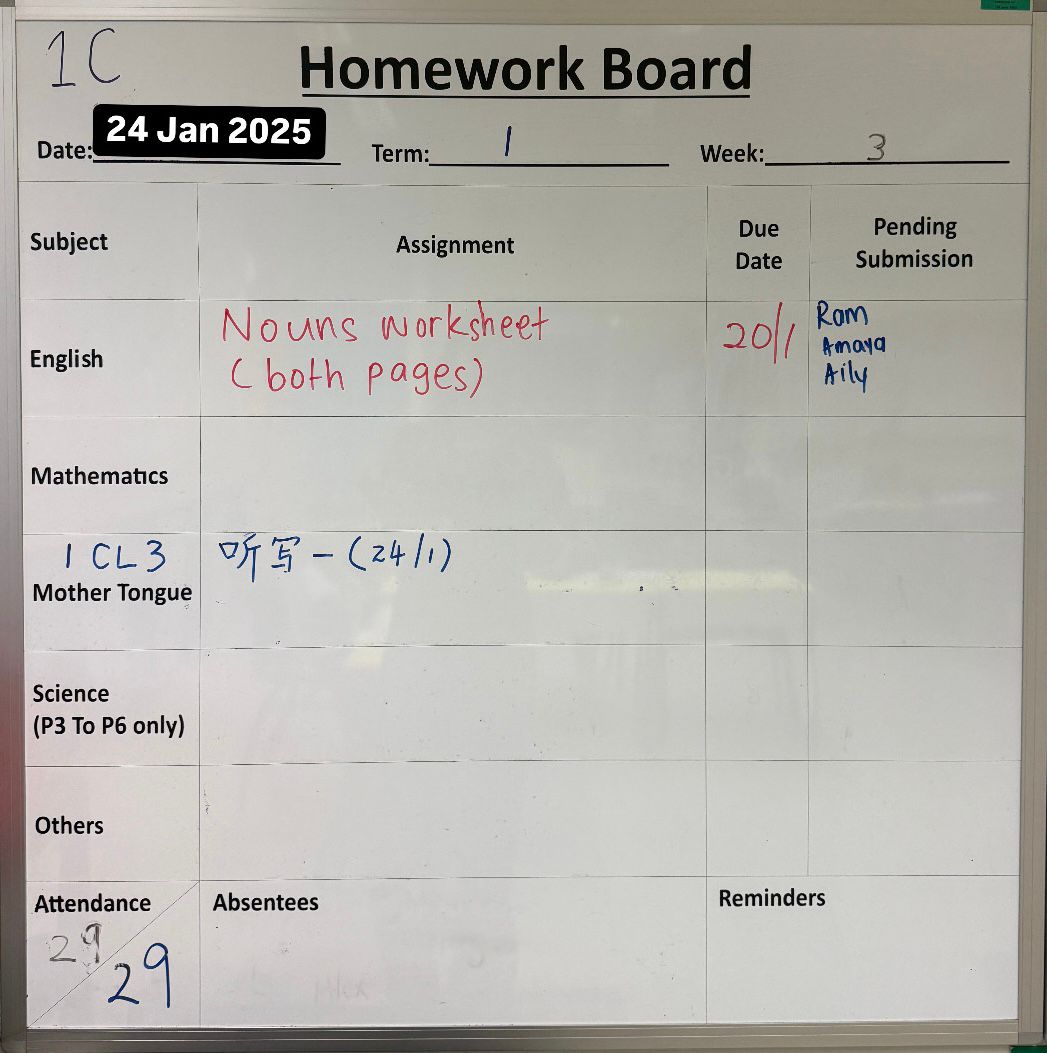 1C
Homework Board
Date: 24 Jan 2025 Term: 1 Week: 3
Subject Assignment Due Date Pending Submission
English Nouns worksheet (both pages) 20/1 Ram
Amaya
Aily
Mathematics
1 CL3 听写 - (24/1)
Mother Tongue
Science
(P3 To P6 only)
Others
Attendance Absentees Reminders
29
29